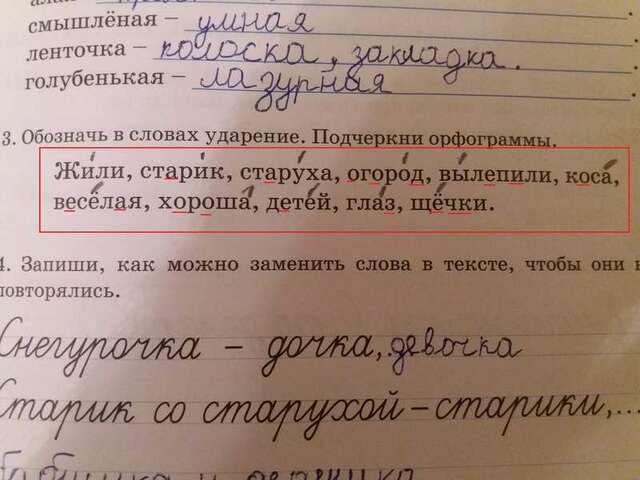 смышлёная – умная
ленточка – полоска, закладка.
голубенькая – лазурная
3. Обозначь в словах ударение. Подчеркни орфограммы.
Жи́ли, стари́к, стару́ха, огоро́д, вы́лепили, коса́,
весёлая, хороша́, дете́й, гла́з, щёчки.
4. Запиши, как можно заменить слова в тексте, чтобы они н
повторялись.
Снегурочка – дочка, девочка
Старик со старухой – старики,...